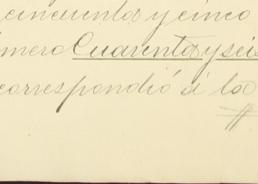 cincuenta y cinco
úmero Cuarenta y seis
correspondió á la